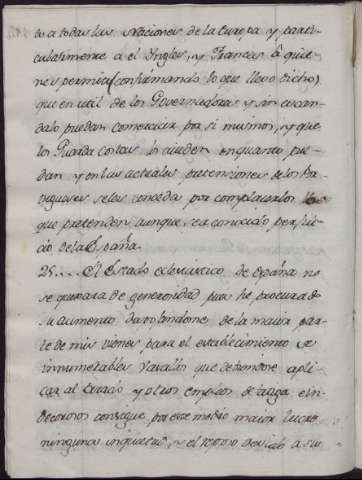 to a todas las Naciones de la Europa y parti-
cularmente a el Ingles, y Frances â quie-
nes permita (confirmando lo que llevo dicho)
que en util de los Governadores y sin escan-
dalo puedan comerciar por si mismos, y que
los Guarda costas les aiuden en quanto pue-
dan y en las actuales pretenciones de los Por-
tugueses se les conceda por complacerlos lo
que pretenden aunque sea conocido perjui-
cio de la España.
25.... El Estado eclesiastico de España no
se quexara de generosidad pues he procurado
su aumento dandolandome de la maior par-
te de mis vienes para el establecimiento de
innumerables que deviendose apli-
car al Estado y otros empleos de fatiga e in-
decorosos consegui por este medio maior lucro
ninguna inquietud y el reposo devido a sus